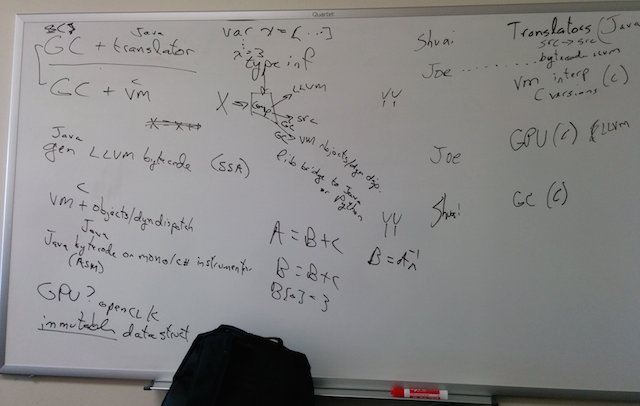 Quartet
Java
GC + translator
C
GC + vm
Java
gen LLVM bytecode (SSA)
C
VM + objects/dyndispatch
Java
Java bytecode or mono/c# instrumentor
(ASM)
GPU? openCL
immutable datastruct
var x = [...]
x = 3
type inf
X → comp
LLVM
src
GC
GC VM objects/dyn disp.
lib bridge to Java
or Python
A = B+C
B = B+C
B[0] = 3
YY
YY
Shuai
Joe
Joe
Shuai
Translators (Java
src → src
bytecode LLVM
vm interp (C)
C versions
GPU (C) LLVM
GC (C)